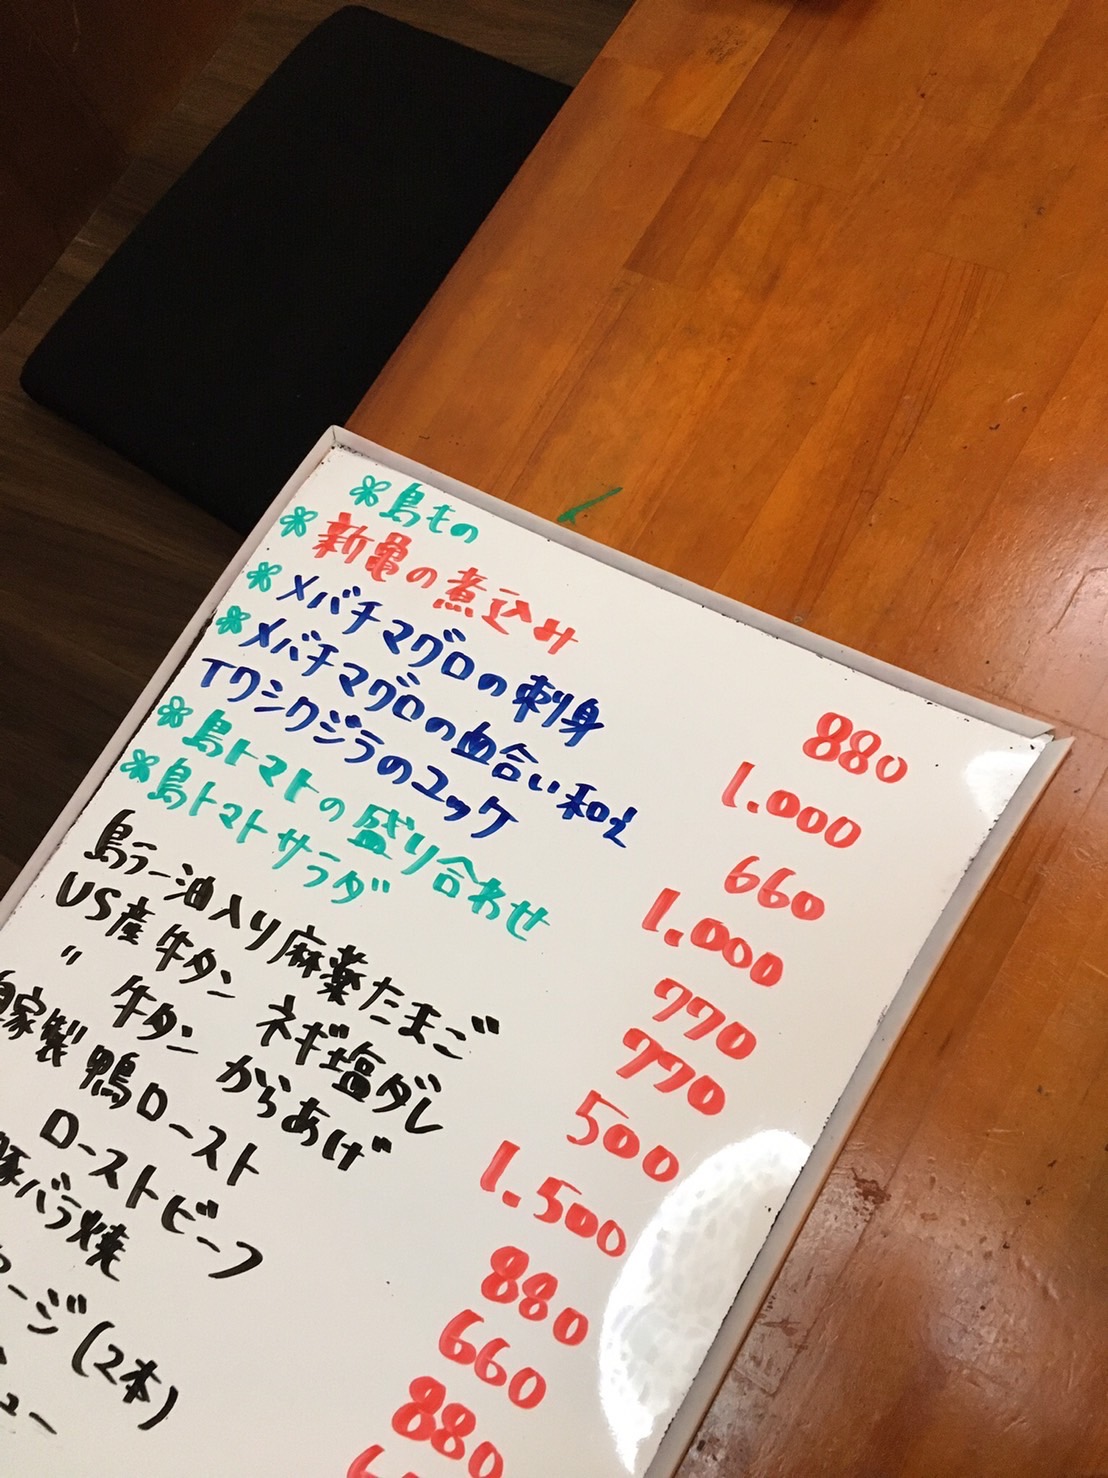 *島もの
*新亀の煮込み 880
*メバチマグロの刺身 1.000
*メバチマグロの血合い和え 660
イワシクジラのユッケ 1.000
*島トマトの盛り合わせ 770
*島トマトサラダ 770
島ラー油入り麻薬たまご 500
US産牛タン ネギ塩ダレ 1.500
〃 牛タン からあげ 880
自家製 鴨ロースト 660
ローストビーフ 880
豚バラ焼
ージ(2本)
ュー